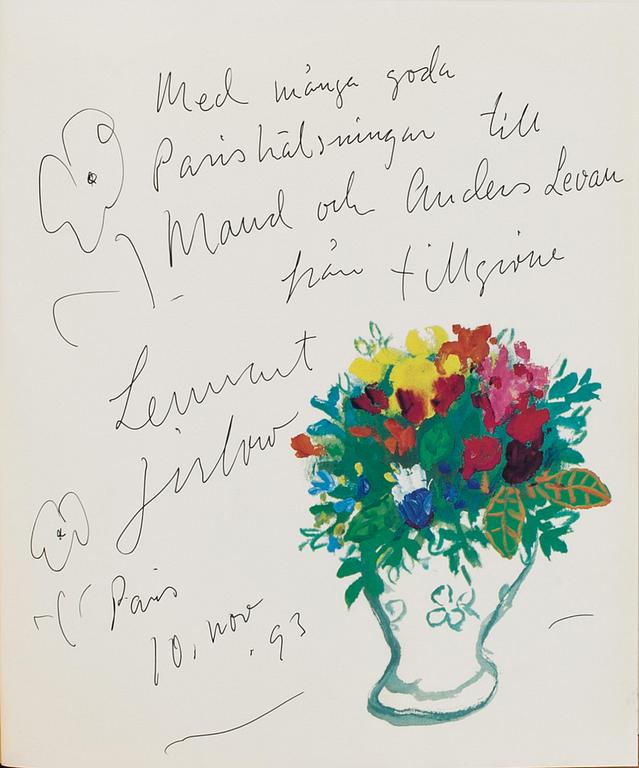 Med många goda
Parishälsningar till
Maud och Anders Levau
från tillgivne
Lennart
Jirlow
Paris
10. nov. 93